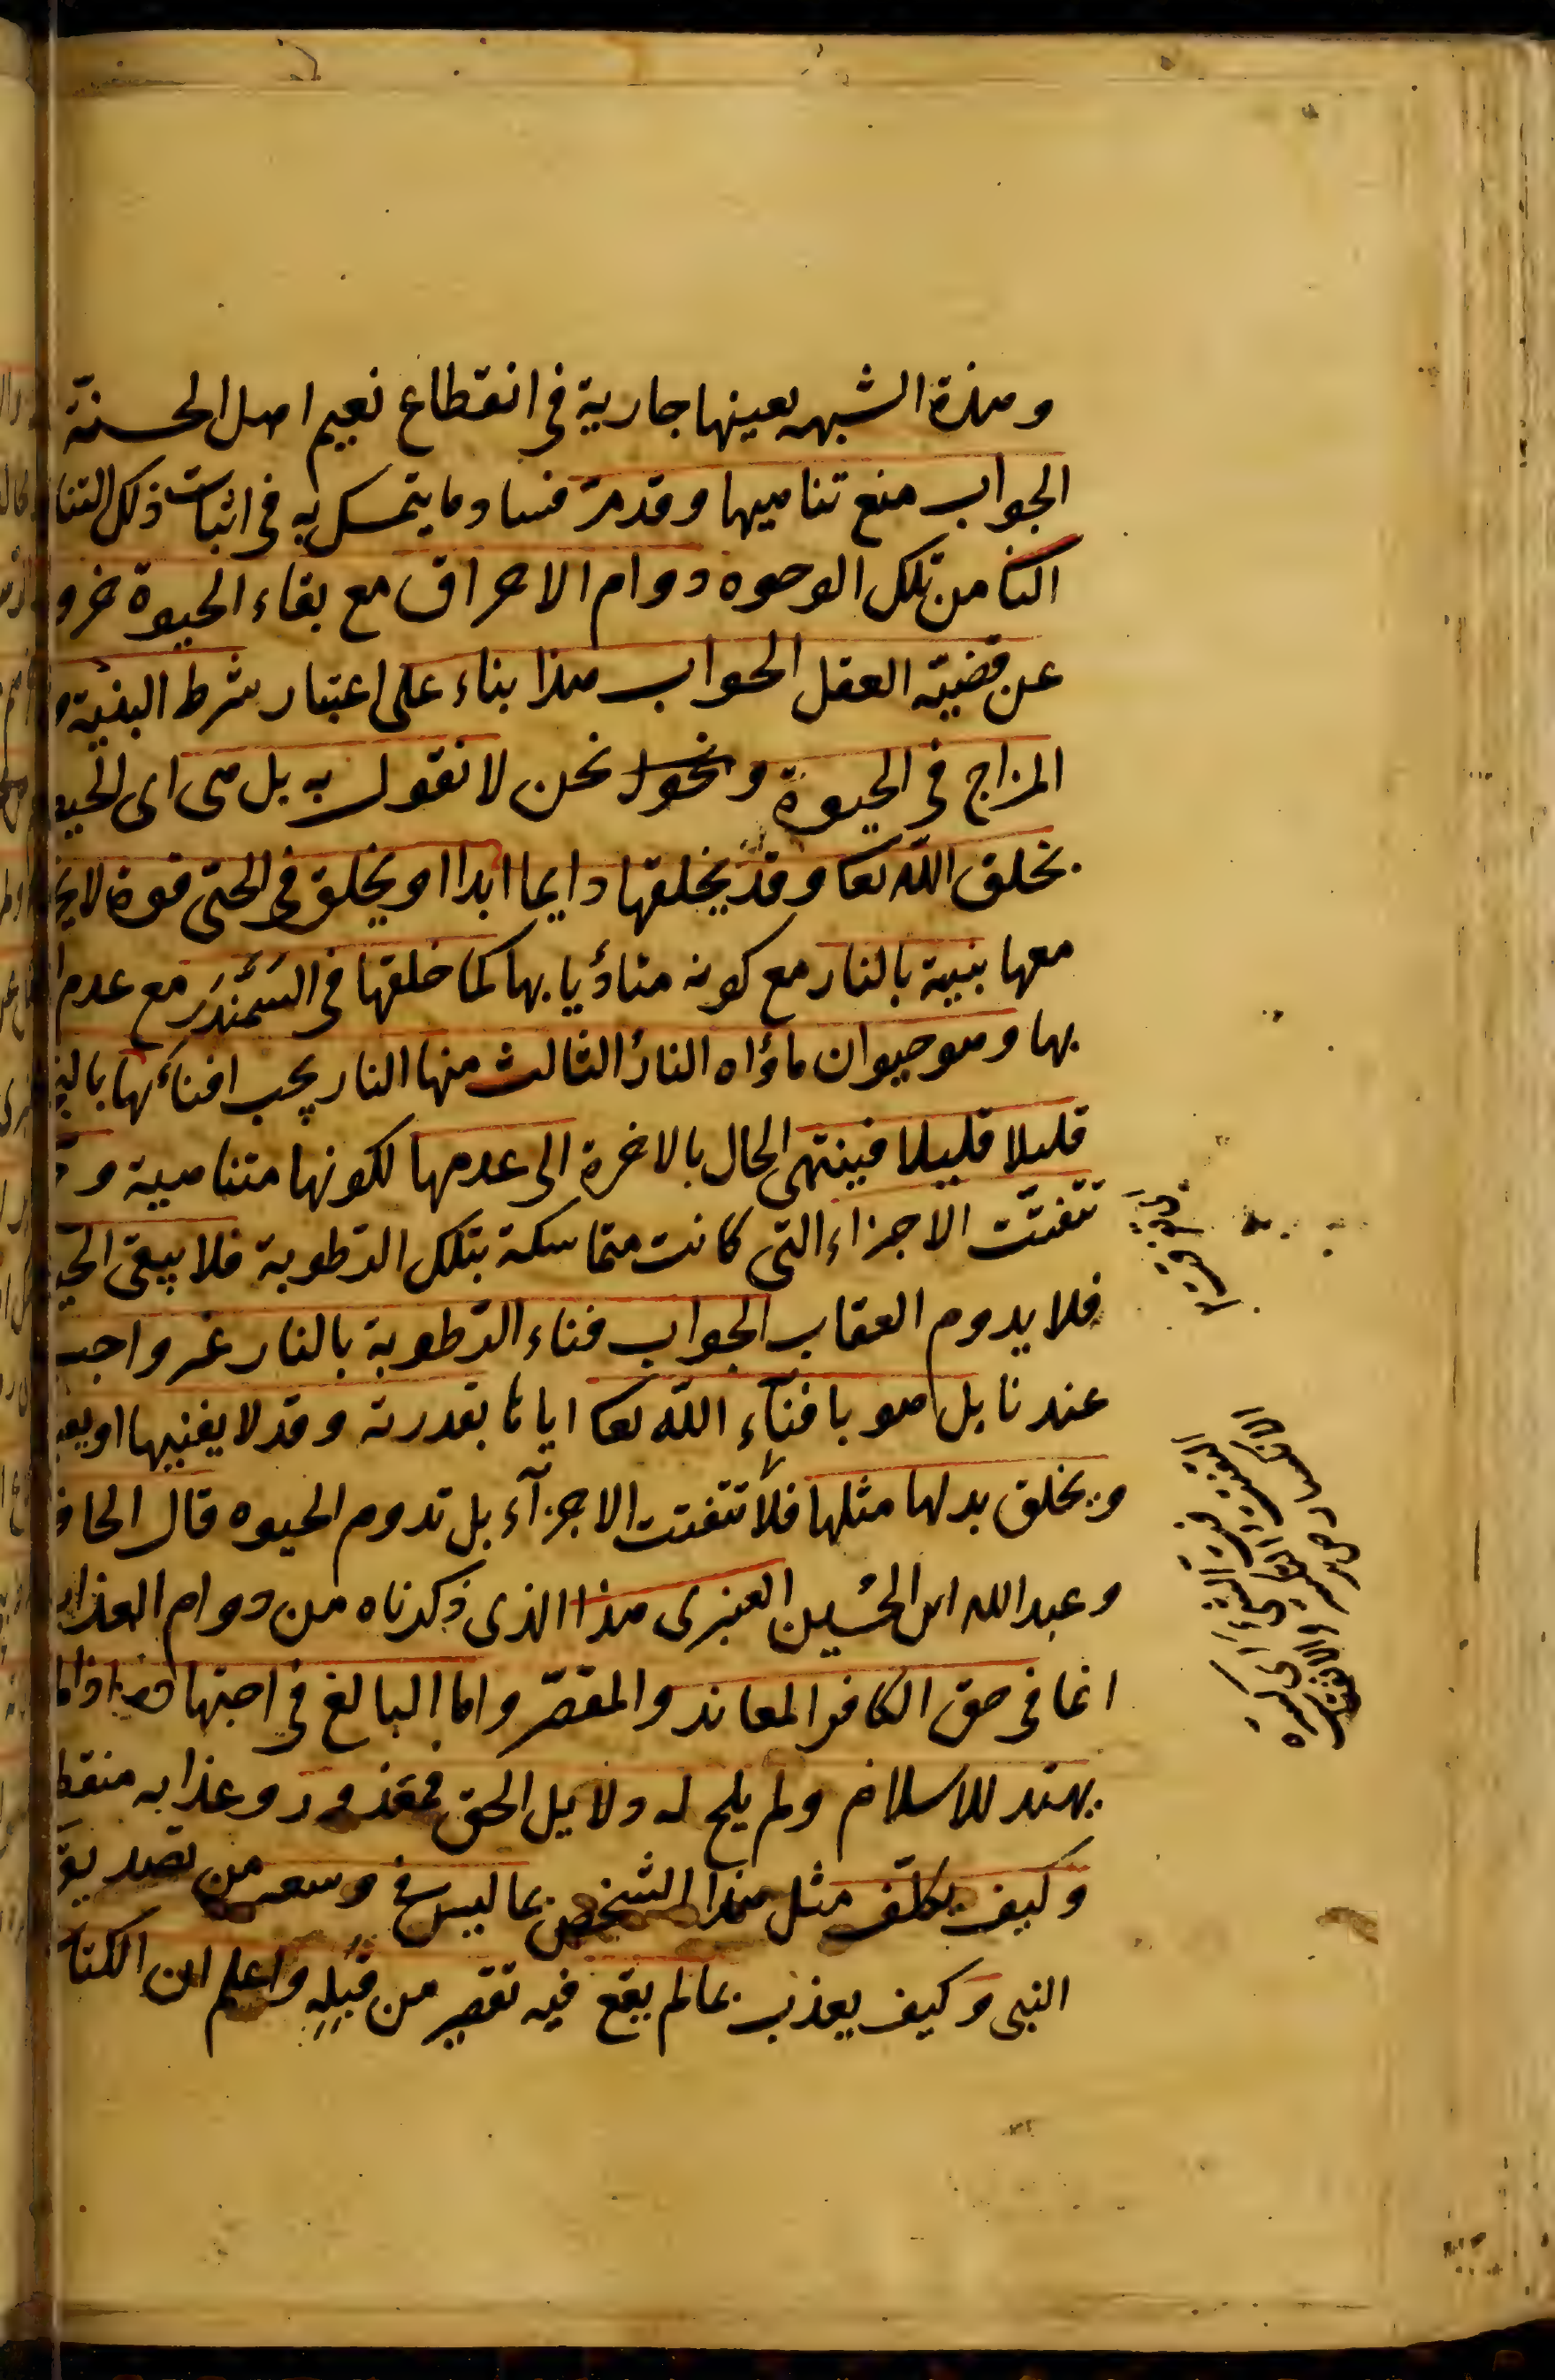 وهذه الشبهه بعينها جارية في انقطاع نعيم اهل الجنة
الجواب منع تناهيها وقد مر فسادما يتمسك به في اثبات ذلك التنا
الثا من تلك الوجوه دوام الاحراق مع بقاء الحيوة خرو
عن قضية العقل الجواب هذا بناء على اعتبار شرط البنية و
المزاج في الحيوة ونحن لا نقول به بل هى اى الحيو
بخلق الله تعا وقد يخلقها دايما ابدا او يخلق في الحى قوة لا يخ
معها بنية بالنار مع كونه متأذيا بها كما خلقها في السمندر مع عدم ا
بها وهو حيوان مأواه النار الثالث منها النار يجب افناءها بالية
قليلا قليلا فينتهى الحال بالاخرة الى عدمها لكونها متناهية و
تتفتت الاجزاء التى كانت متماسكة بتلك الرطوبة فلا يبقى الحيو
فلا يدوم العقاب الجواب فناء الرطوبة بالنار غير واجب
عندنا بل هو بافناء الله تعا اياها بقدرته وقد لا يفنيها او يفنـ
ويخلق بدلها مثلها فلا تتفتت الاجزآء بل تدوم الحيوه قال الجاحـ
وعبد الله ابن الحسين العنبرى هذا الذى ذكرناه من دوام العذاب
انما في حق الكافر المعاند والمقصر واما البالغ في اجتهاده اذا لم
يهتد للاسلام ولم يلح له دلايل الحق فمعذور وعذابه منقط
وكيف يكلف مثل هذا الشخص بما ليس في وسعه من تصديق
النبى وكيف يعذب بما لم يقع فيه تقصير من قبله واعلم ان الكتا